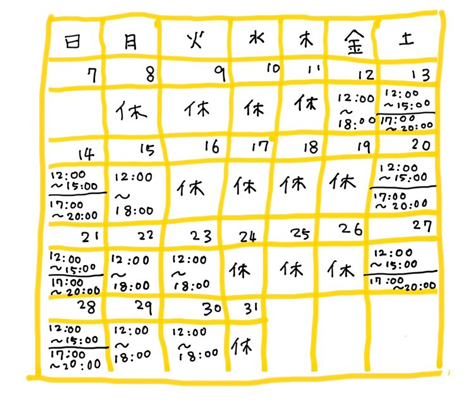 日 月 火 水 木 金 土
7 8 9 10 11 12 13
休 休 休 休 12:00 ～ 18:00 12:00 ～15:00 17:00 ～20:00
14 15 16 17 18 19 20
12:00 ～15:00 17:00 ～20:00 12:00 ～ 18:00 休 休 休 休 12:00 ～15:00 17:00 ～20:00
21 22 23 24 25 26 27
12:00 ～15:00 17:00 ～20:00 12:00 ～ 18:00 12:00 ～ 18:00 休 休 休 12:00 ～15:00 17:00 ～20:00
28 29 30 31
12:00 ～15:00 17:00 ～20:00 12:00 ～ 18:00 12:00 ～ 18:00 休